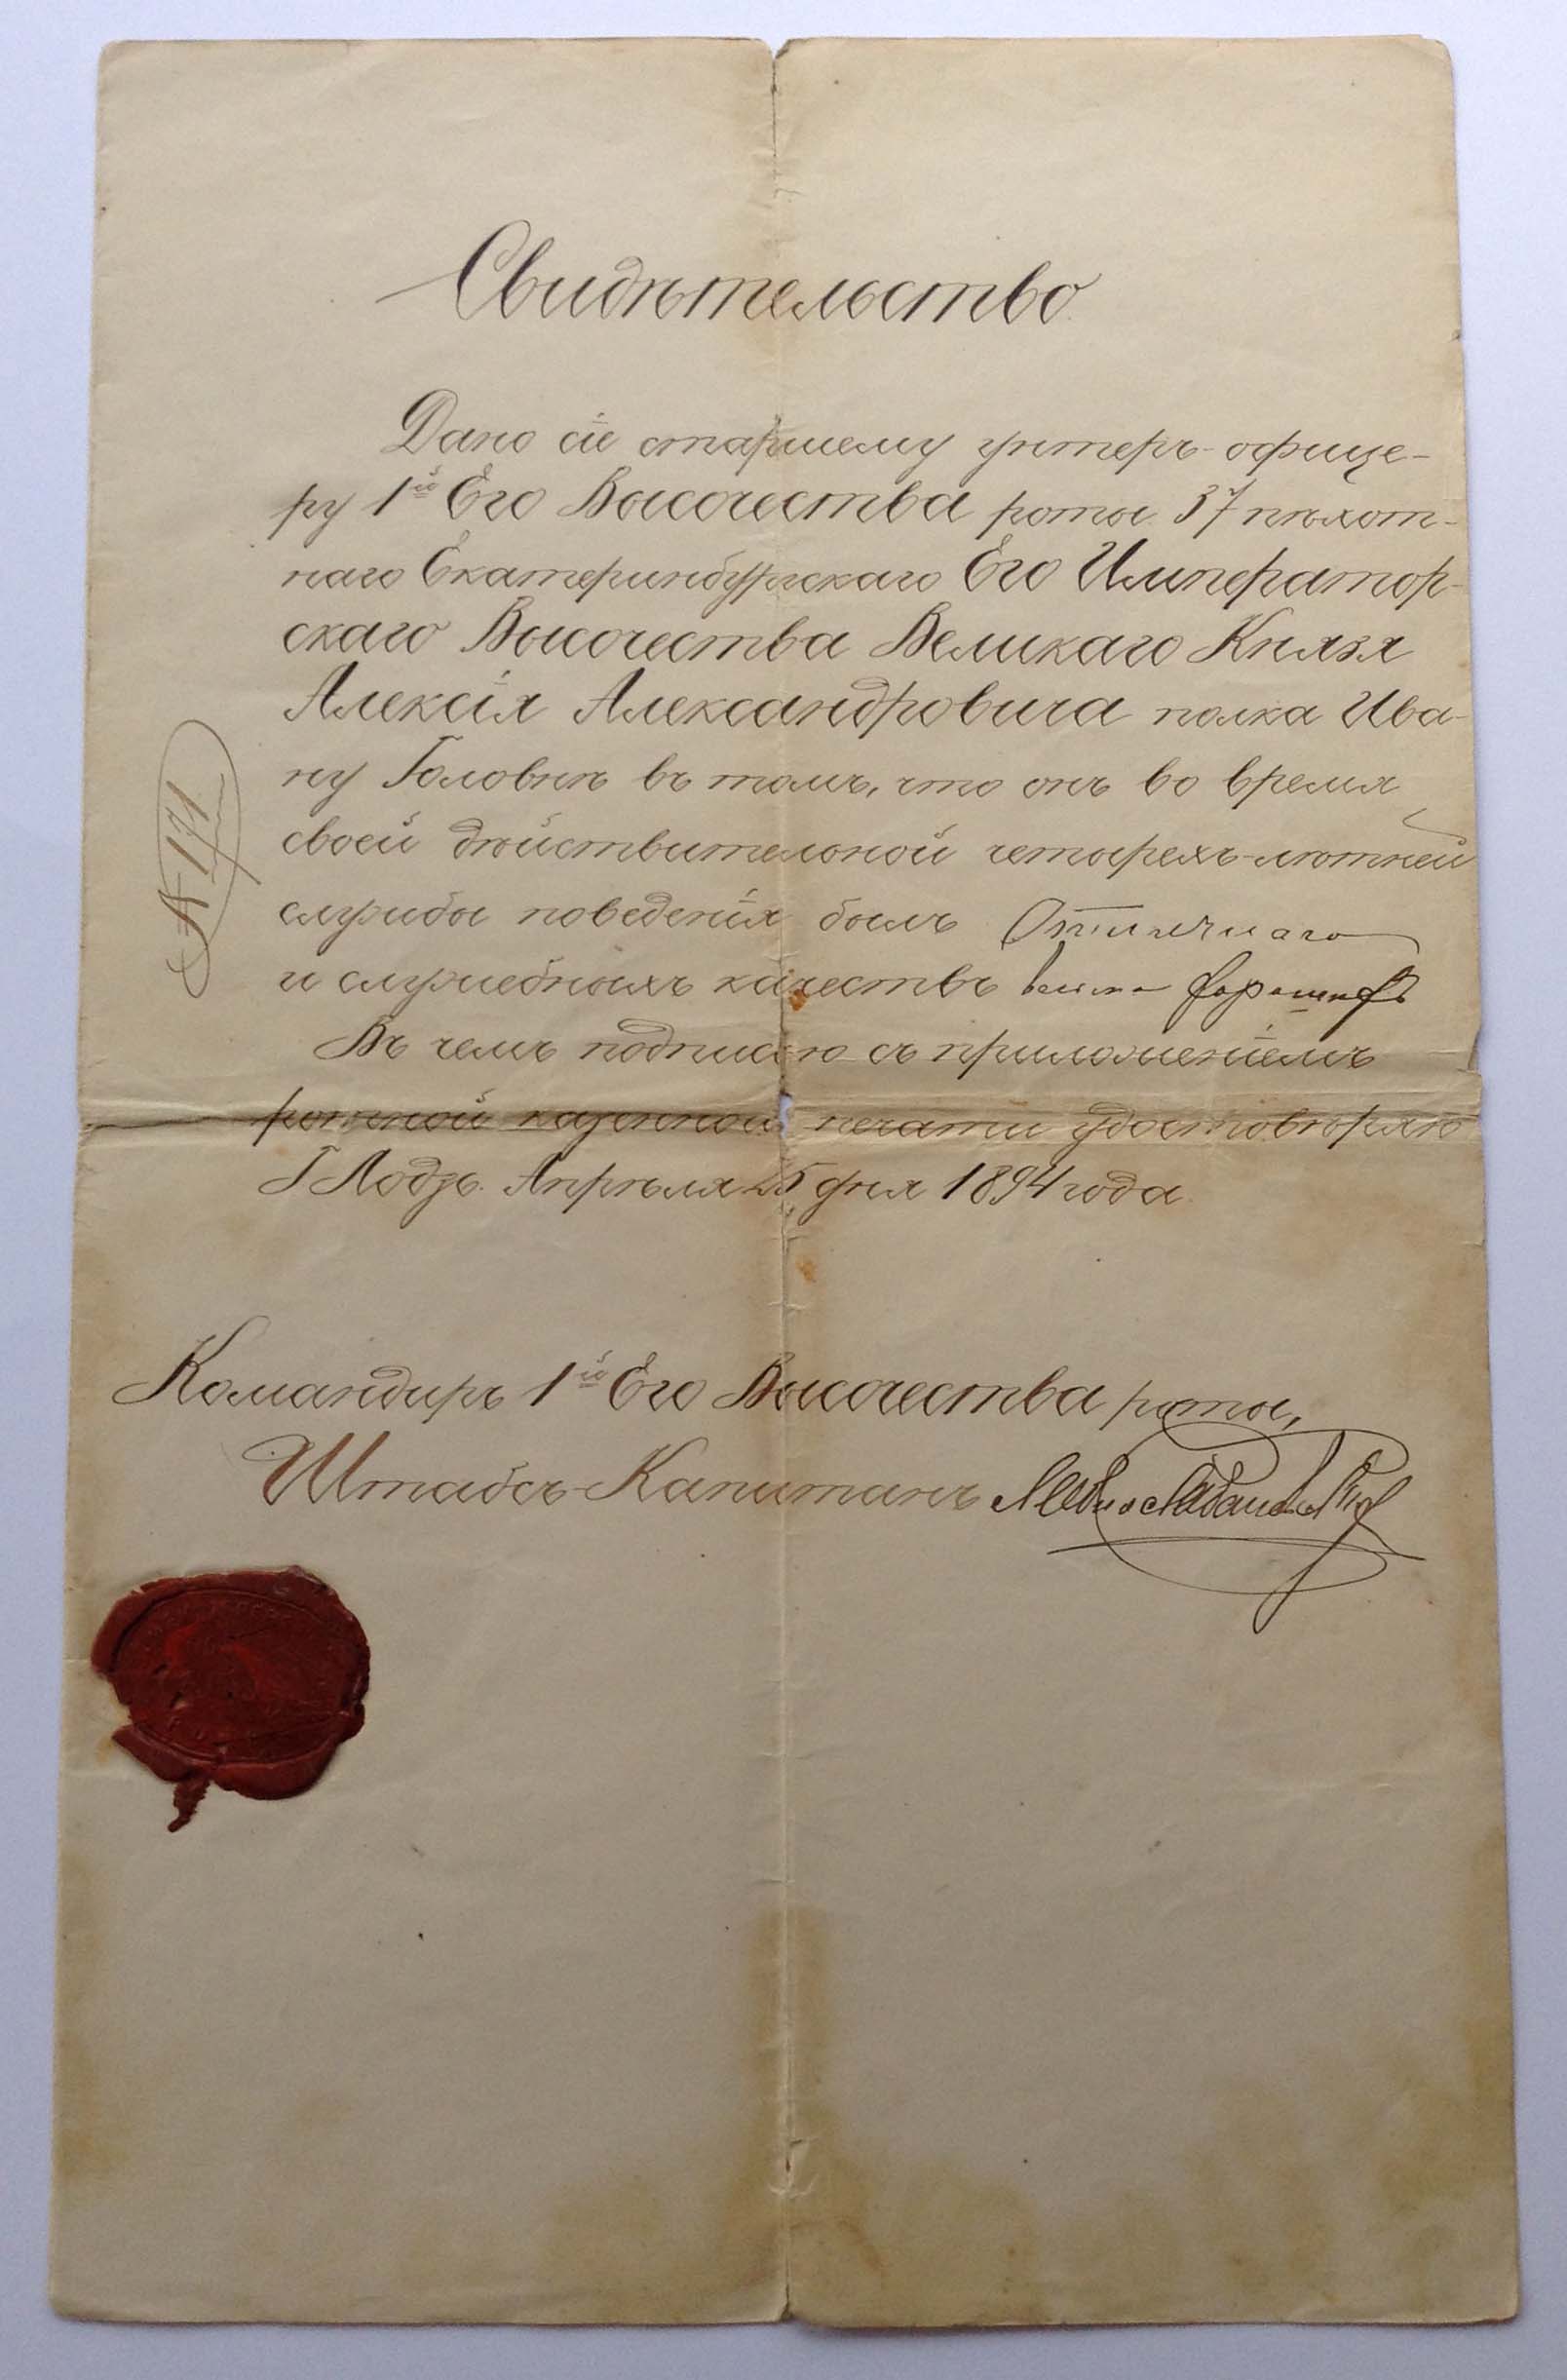 Свидѣтельство.
Дано сіе старшему унтеръ-офице-
ру 1й Его Высочества роты 37 пѣхот-
наго Екатеринбургскаго Его Император-
скаго Высочества Великаго Князя
Алексія Александровича полка Ива-
ну Головнѣ въ томъ, что онъ во время
своей дѣйствительной четырехъ-лѣтней
службы поведенія былъ Отличнаго
и служебныхъ качествъ весьма хорошихъ
Въ чемъ подписью съ приложеніемъ
ротной казенной печати удостовѣряю
Г Лодзь. Апрѣля 25 дня 1894 года.
Командиръ 1й Его Высочества роты,
Штабсъ-Капитанъ
№ 171